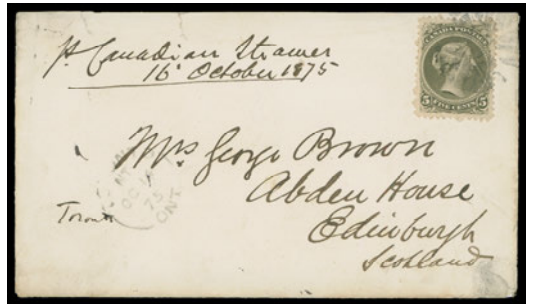 pr Canadian Steamer
16 October 1875
CANADA POSTAGE
5 FIVE CENTS 5
Mrs George Brown
Abden House
Edinburgh
Scotland
OC
75
ONT
Toronto